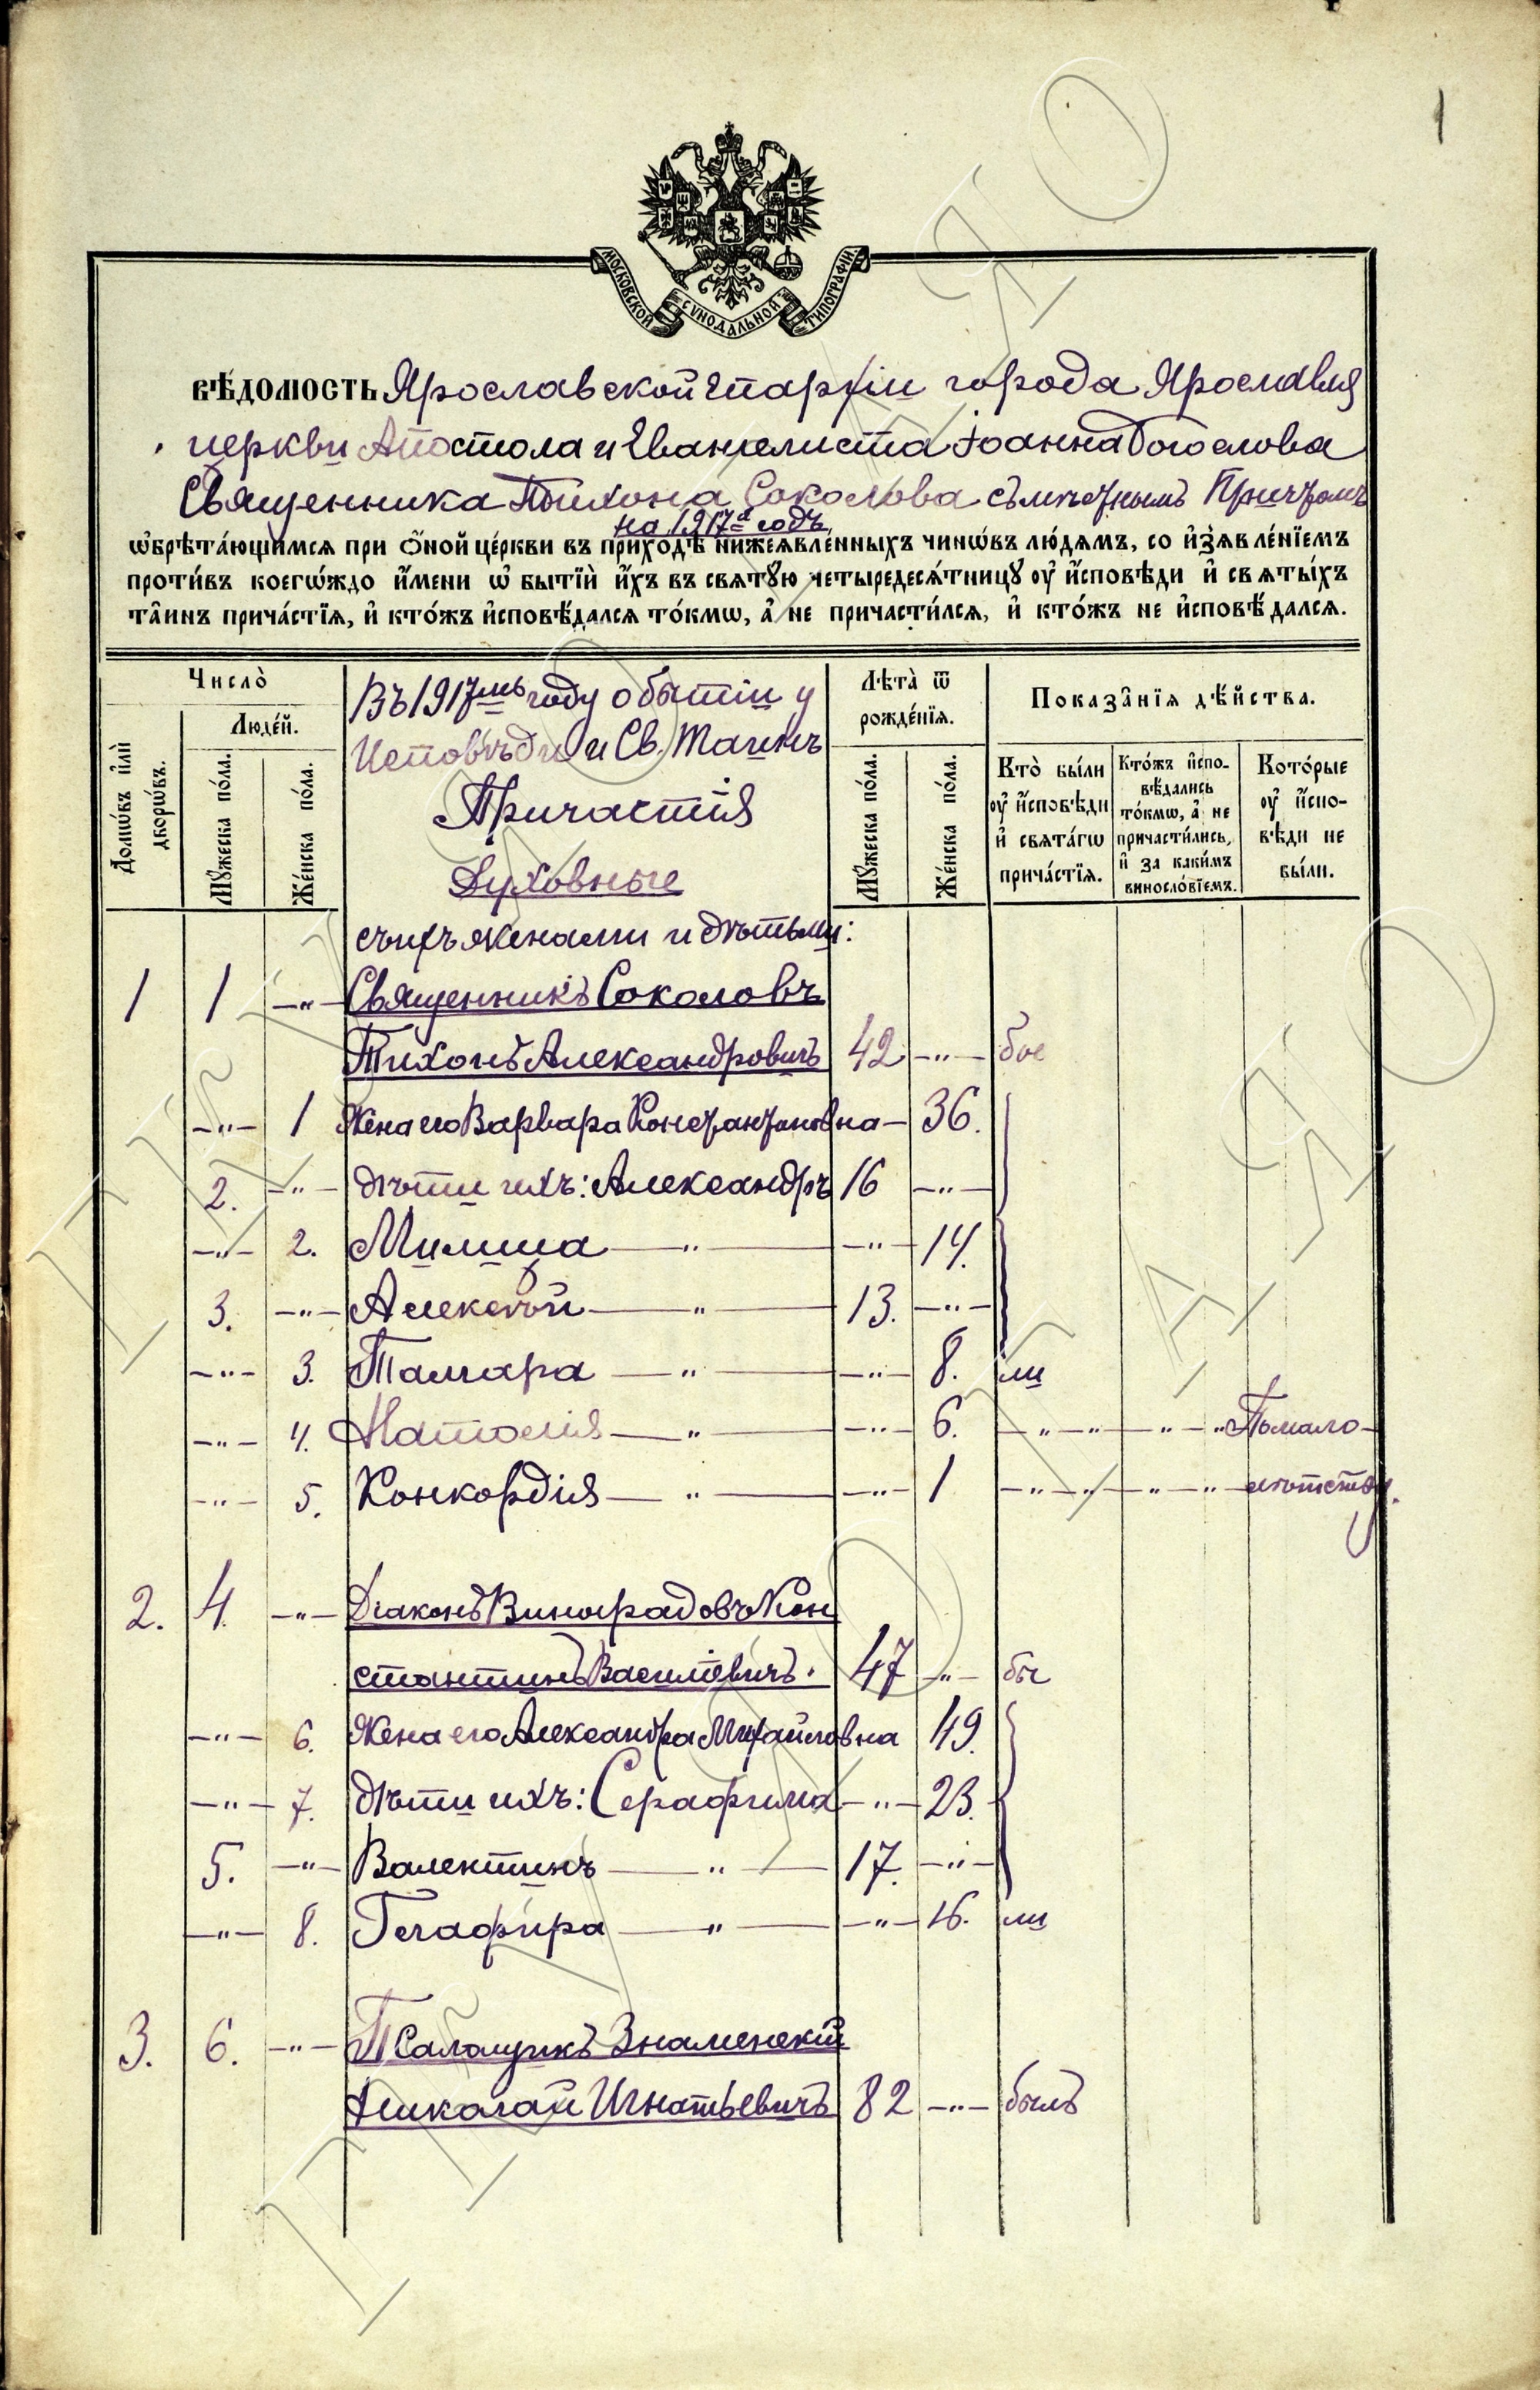 1
МОСКОВСКОЙ СѴНОДАЛЬНОЙ ТИПОГРАФІИ
ВѢ́ДОМОСТЬ Ярославской Епархіи города Ярославля
церкви Апостола и Евангелиста Іоанна Богослова
Священника Тихона Соколова съ мѣстнымъ Причтомъ
на 1917й годъ
ѡ҆брѣта́ющимсѧ при ѻ҆́ной це́ркви въ прихо́дѣ нижеѧвле́нныхъ чинѡ́въ лю́дѧмъ, со и҆зъѧвле́нїемъ
проти́въ коегѡ́ждо и҆́мени ѡ҆ бытїѝ и҆́хъ въ свѧтꙋ́ю четыредесѧ́тницꙋ ᲂу҆ и҆́сповѣди и҆ свѧты́хъ
та̑инъ прича́стїѧ, и҆ кто́жъ и҆сповѣ́далсѧ то́кмѡ, а҆ не причасти́лсѧ, и҆ кто́жъ не и҆сповѣ́далсѧ.
Число̀
Люде́й.
Домѡ́въ и҆лѝ дворѡ́въ.
Мꙋ́жеска по́ла.
Же́нска по́ла.
Въ 1917мъ году о бытіи у
Исповѣди и Св. Таинъ
Причастія
Духовные
съ ихъ женами и дѣтьми:
Лѣта̀ ѿ
рожде́нїѧ.
Мꙋ́жеска по́ла.
Же́нска по́ла.
Показа̑нїѧ дѣ́йства.
Кто̀ бы́ли
ᲂу҆ и҆́сповѣди
и҆ свѧта́гѡ
прича́стїѧ.
Кто́жъ и҆спо-
вѣ́дались
то́кмѡ, а҆ не
причасти́лись,
и҆ за каки́мъ
виносло́вїемъ.
Кото́рые
ᲂу҆ и҆́спо-
вѣди не
бы́ли.
1 1 —"— Священникъ Соколовъ
Тихонъ Александровичъ 42 —"— бы
—"— 1 Жена его Варвара Константиновна — 36.
2. —"— дѣти ихъ: Александръ 16 —"—
—"— 2. Милица —"— —"— 14.
3. —"— Алексѣй —"— 13. —"—
—"— 3. Тамара —"— —"— 8. ли
—"— 4. Наталія —"— —"— 6. —"—"—"—"— По мало-
—"— 5. Конкордія —"— —"— 1 —"—"—"—"— лѣтству.
2. 4. —"— Діаконъ Виноградовъ Кон
стантинъ Василіевичъ. 47 —"— бы
—"— 6. Жена его Александра Михайловна 49.
—"— 7. дѣти ихъ: Серафима —"— 23.
5. —"— Валентинъ —"— 17. —"—
—"— 8. Глафира —"— —"— 16. ли
3. 6. —"— Псаломщикъ Знаменскій
Николай Игнатьевичъ 82 —"— былъ